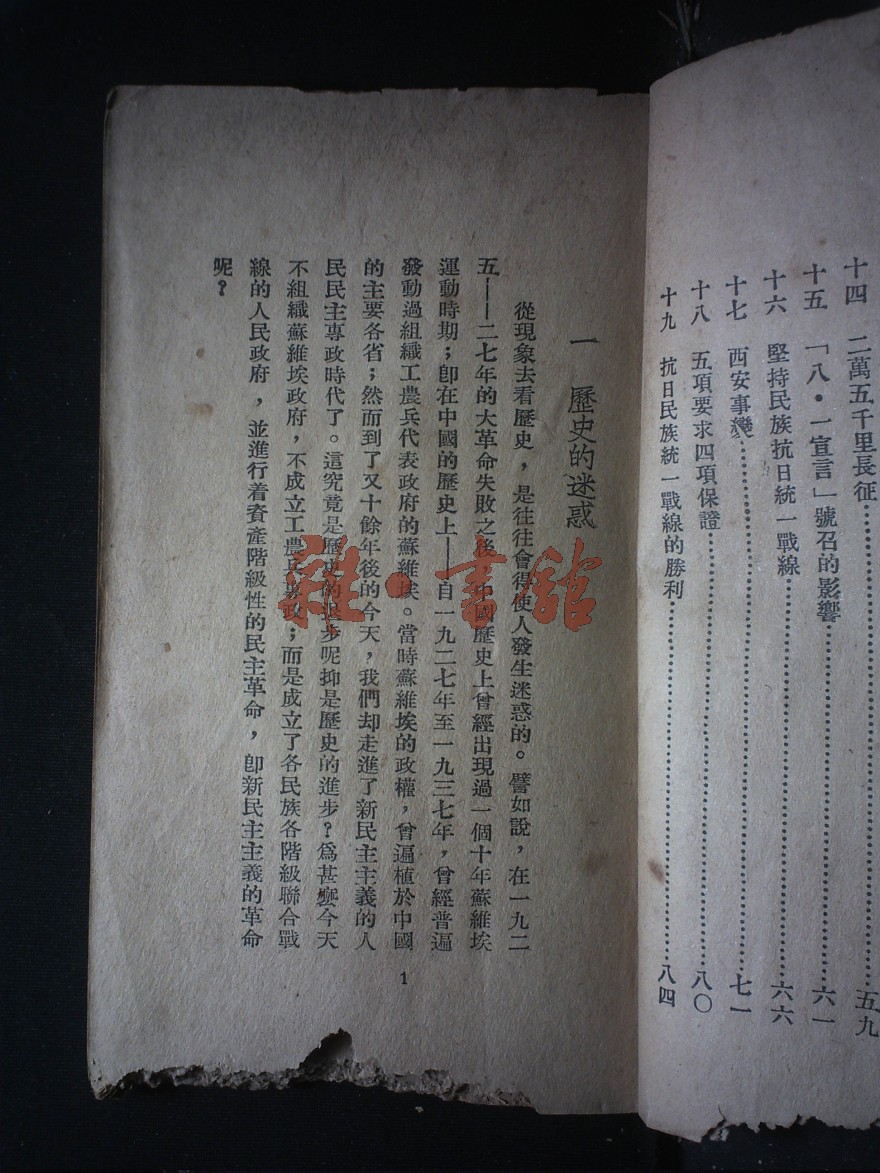 十四　二萬五千里長征…………五九
十五　「八・一宣言」號召的影響…………六一
十六　堅持民族抗日統一戰線…………六六
十七　西安事變…………七一
十八　五項要求四項保證…………八〇
十九　抗日民族統一戰線的勝利…………八四
一　歷史的迷惑
從現象去看歷史，是往往會得使人發生迷惑的。譬如說，在一九二
五——二七年的大革命失敗之後，中國歷史上曾經出現過一個十年蘇維埃
運動時期；卽在中國的歷史上——自一九二七年至一九三七年，曾經普遍
發動過組織工農兵代表政府的蘇維埃。當時蘇維埃的政權，曾遍植於中國
的主要各省；然而到了又十餘年後的今天，我們却走進了新民主主義的人
民民主專政時代了。這究竟是歷史的退步呢抑是歷史的進步？爲甚麼今天
不組織蘇維埃政府，不成立工農兵專政；而是成立了各民族各階級聯合戰
線的人民政府，並進行着資產階級性的民主革命，卽新民主主義的革命
呢？
1
雜・書館